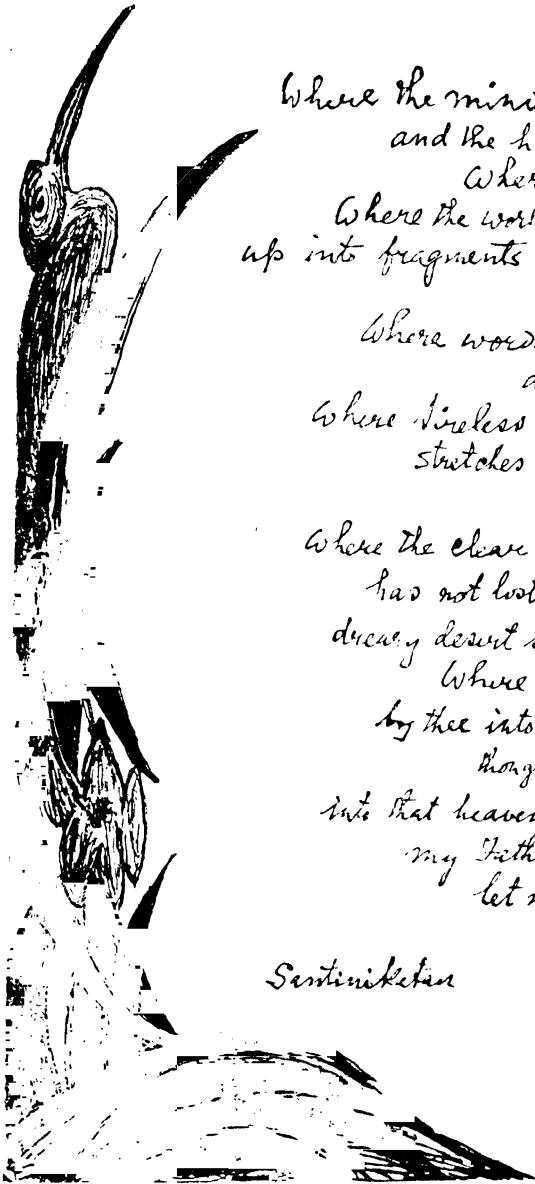 Where the mind
and the h
Wher
Where the worl
up into fragments
Where word
a
Where tireless
stretches
Where the clear
has not lost
dreary desert s
Where
by thee into
thoug
into that heaven
my Fath
let m
Santiniketan